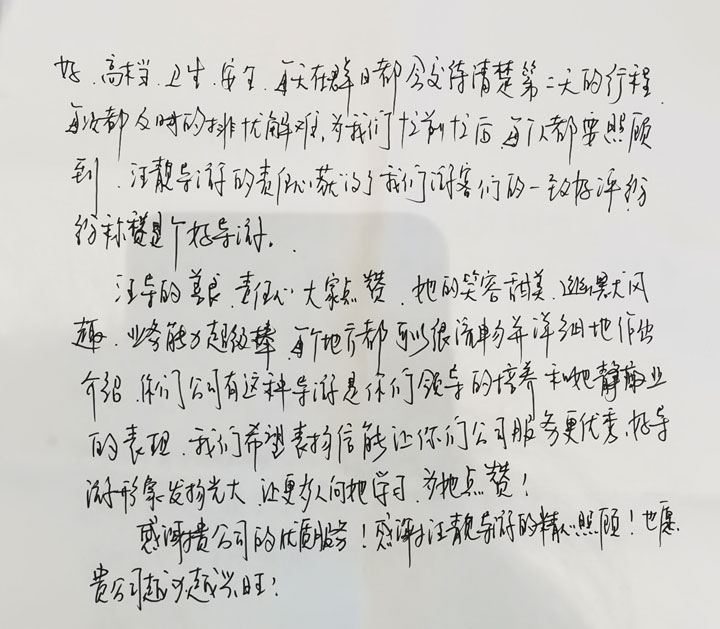 好、高档、卫生、安全、每天在群里都会交待清楚第二天的行程、
每次都及时的排忧解难、为我们忙前忙后、每个人都要照顾
到、汪靓导游的责任心获得了我们游客们的一致好评纷
纷称赞是个好导游。
汪导的善良、责任心大家点赞、她的笑容甜美、幽默风
趣、业务能力超级棒、每个地方都可以很流畅并详细地作出
介绍、你们公司有这种导游是你们领导的培养和她敬业
的表现、我们希望表扬信能让你们公司服务更优秀、好导
游形象发扬光大、让更多人向她学习、为她点赞！
感谢贵公司的优质服务！感谢汪靓导游的精心照顾！也愿
贵公司越办越兴旺！